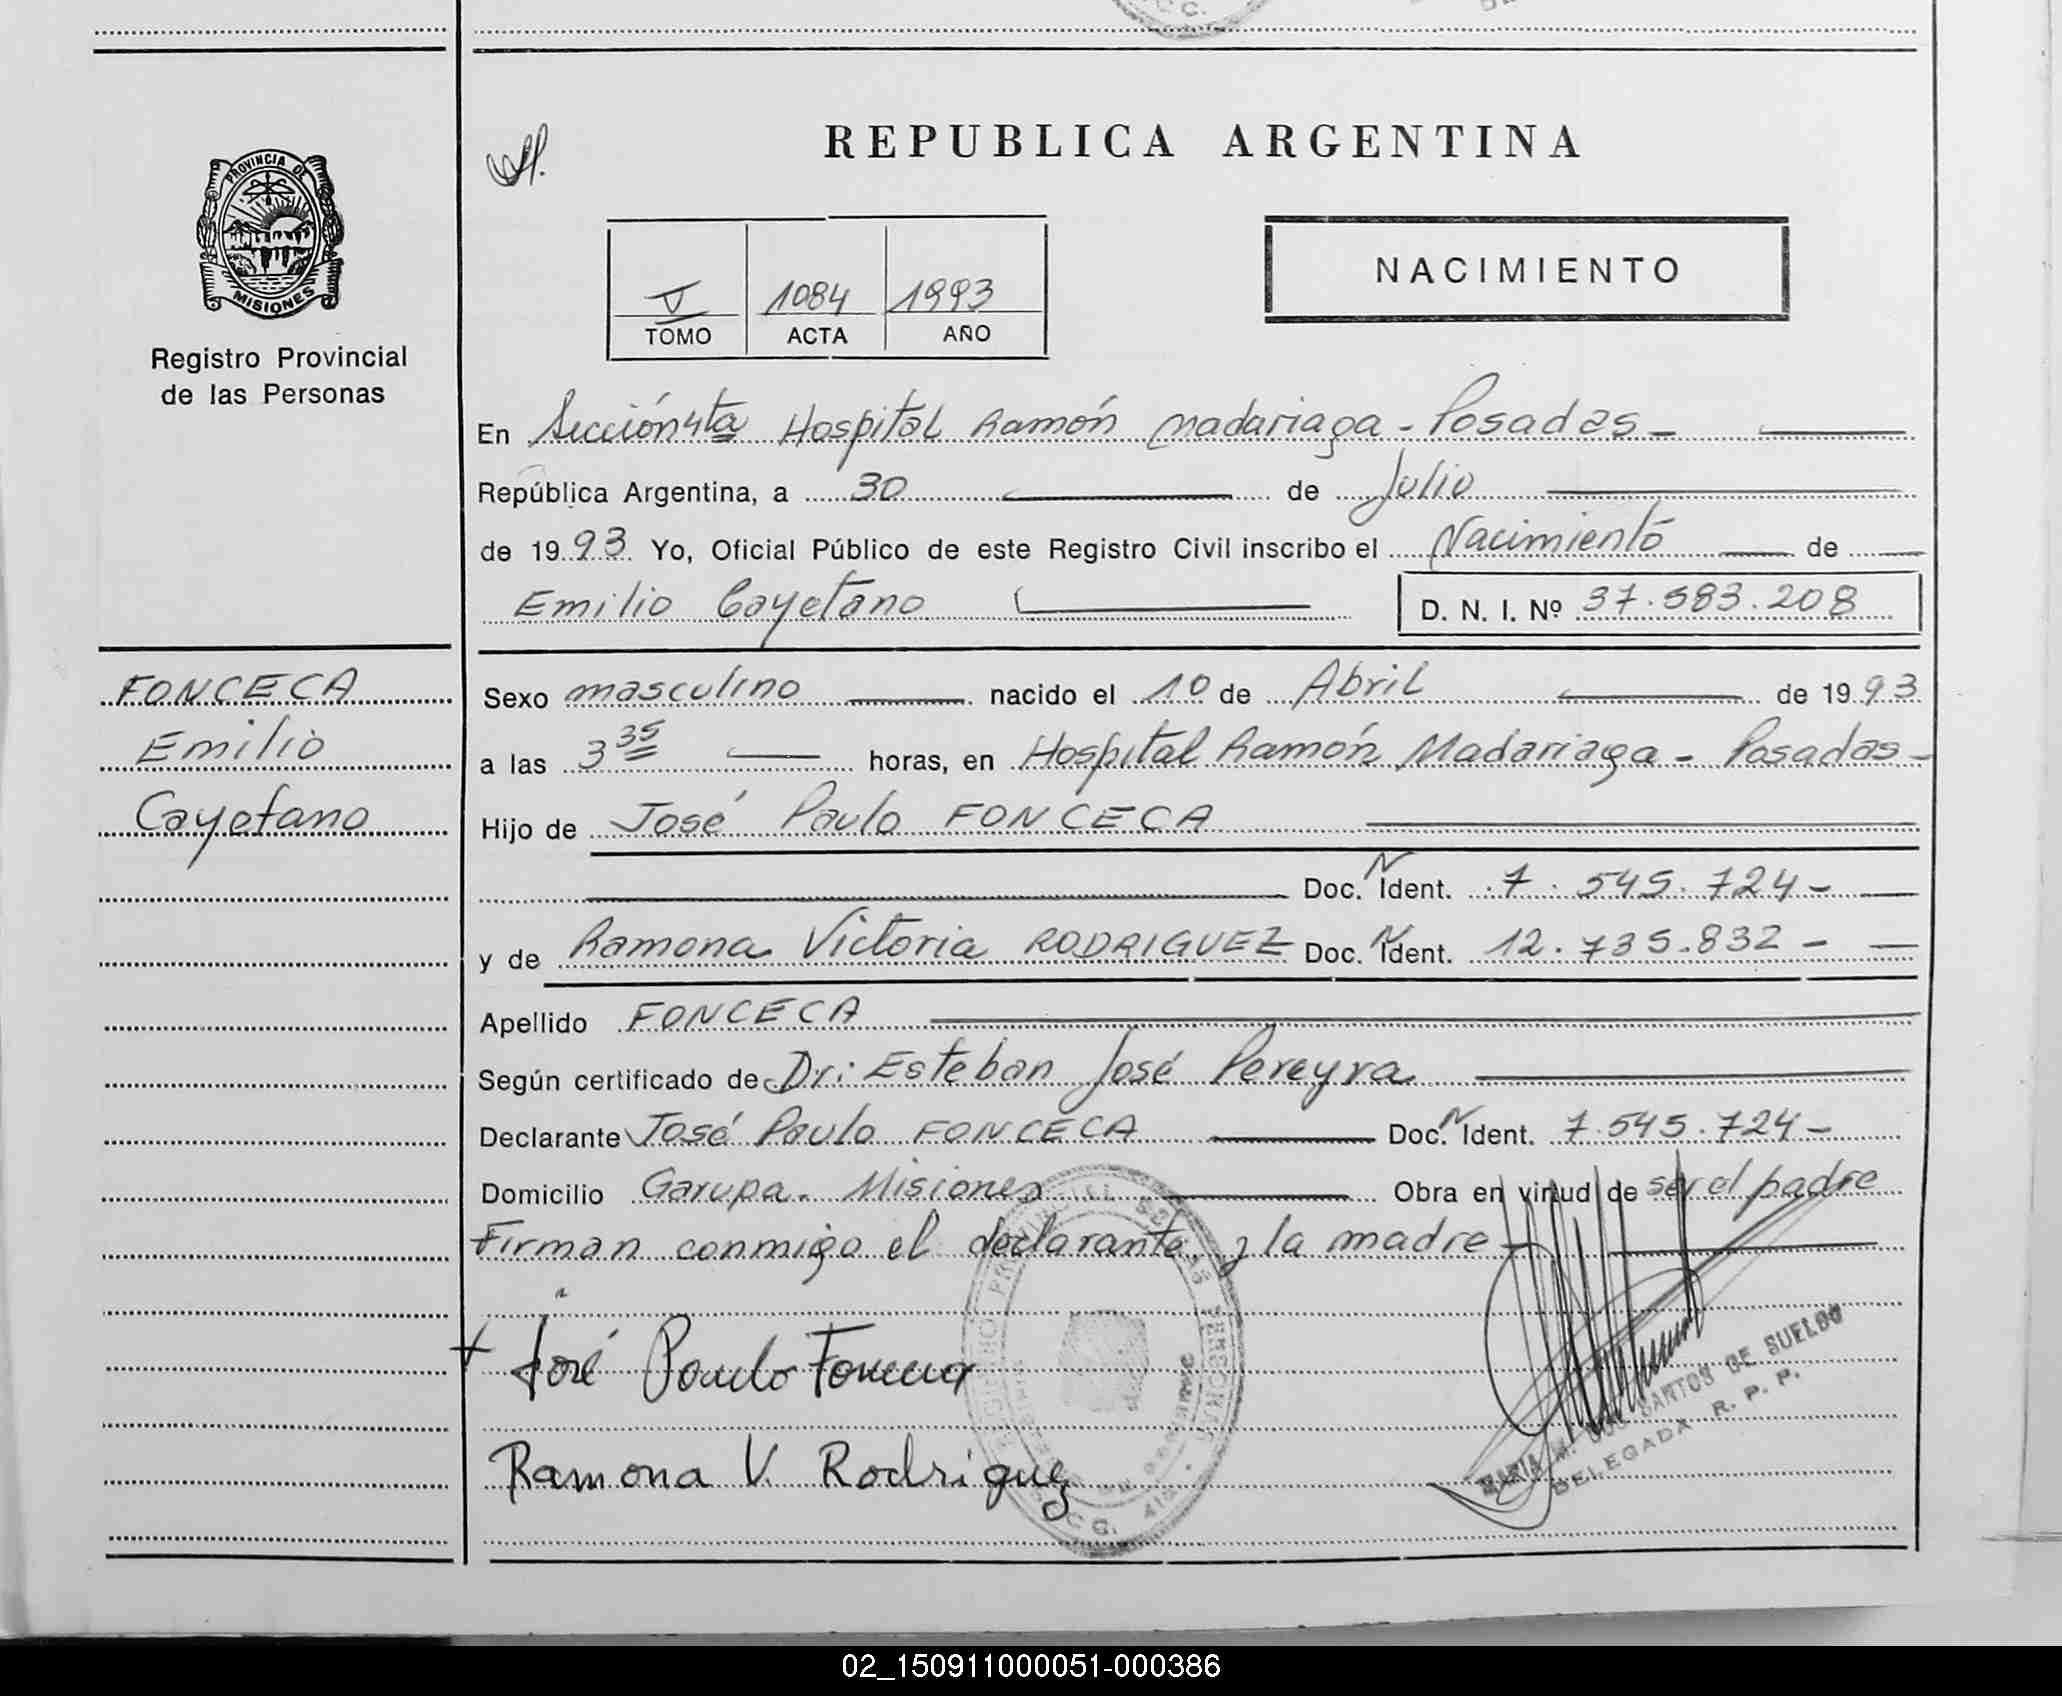 REPUBLICA ARGENTINA
PROVINCIA DE
MISIONES
Registro Provincial
de las Personas
V 1084 1993
TOMO ACTA AÑO
NACIMIENTO
En Sección 4ta Hospital Ramón Madariaga - Posadas -
República Argentina, a 30 de Julio
de 1993 Yo, Oficial Público de este Registro Civil inscribo el Nacimiento de
Emilio Cayetano D. N. I. Nº 37.583.208
FONCECA
Emilio
Cayetano
Sexo masculino nacido el 10 de Abril de 1993
a las 3 35 horas, en Hospital Ramón Madariaga - Posadas -
Hijo de José Paulo FONCECA
Doc. N Ident. 7.545.724 -
y de Ramona Victoria RODRIGUEZ Doc. N Ident. 12.735.832 -
Apellido FONCECA
Según certificado de Dr: Esteban José Pereyra
Declarante José Paulo FONCECA Doc. N Ident. 7.545.724 -
Domicilio Garupa. Misiones Obra en virtud de ser el padre
Firman conmigo el declarante y la madre
José Paulo Fonceca
Ramona V. Rodriguez
MARIA M. DOS SANTOS DE SUELDO
DELEGADA R. P. P.
02_150911000051-000386